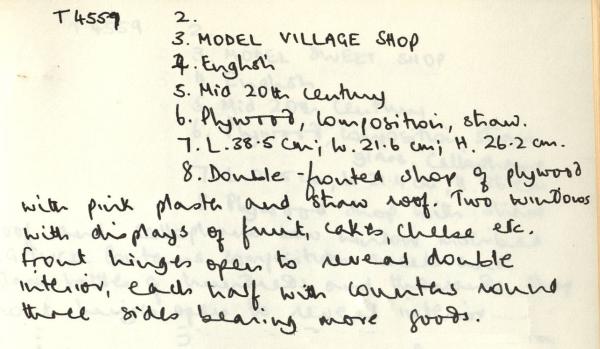 T4559 2.
3. MODEL VILLAGE SHOP
4. English
5. Mid 20th Century
6. Plywood, composition, straw.
7. L. 38.5 cm; W. 21.6 cm; H. 26.2 cm.
8. Double-fronted shop of plywood
with pink plaster and straw roof. Two windows
with displays of fruit, cakes, cheese etc.
Front hinges open to reveal double
interior, each half with counters round
three sides bearing more goods.